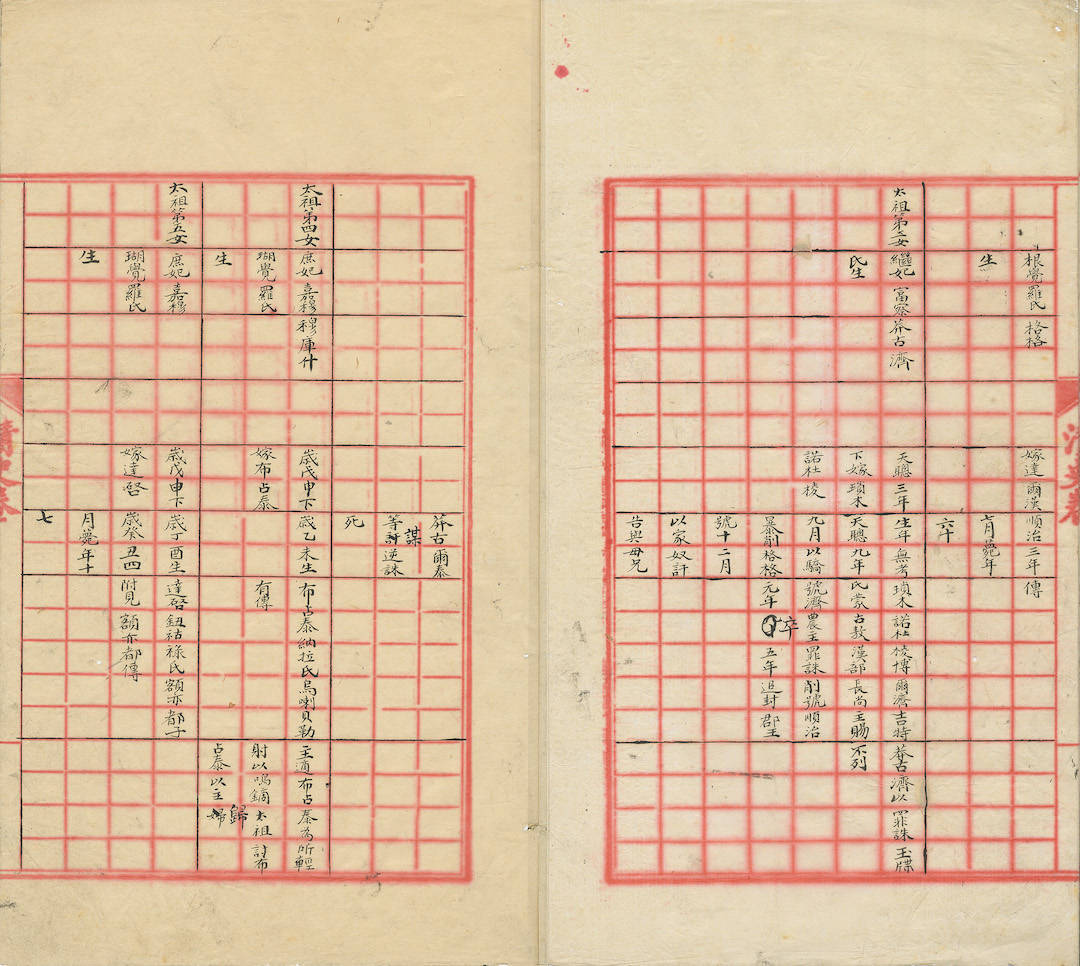 根覺羅氏
生
格格
嫁達爾漢
順治三年
七月薨年
六十
傳
太祖第三女
繼妃富察
氏生
莽古濟
天聰三年
下嫁瑣木
諾杜棱
生年無考
天聰九年
九月以驕
暴削格格
號十二月
以家奴訐
告與母兄
瑣木諾杜棱博爾濟吉特
氏蒙古敖漢部長尚主賜
號濟農主罪誅削號順治
元年卒五年追封郡王
莽古濟以罪誅玉牒
不列
莽古爾泰
等謀逆誅
死
太祖第四女
庶妃嘉穆
瑚覺羅氏
生
穆庫什
歲戊申下
嫁布占泰
歲乙未生
布占泰納拉氏烏喇貝勒
有傳
主適布占泰為所輕
射以鳴鏑太祖討布
占泰以主歸
太祖第五女
庶妃嘉穆
瑚覺羅氏
生
歲戊申下
嫁達啓
歲丁酉生
歲癸丑四
月薨年十
七
達啓鈕祜祿氏額亦都子
附見額亦都傳